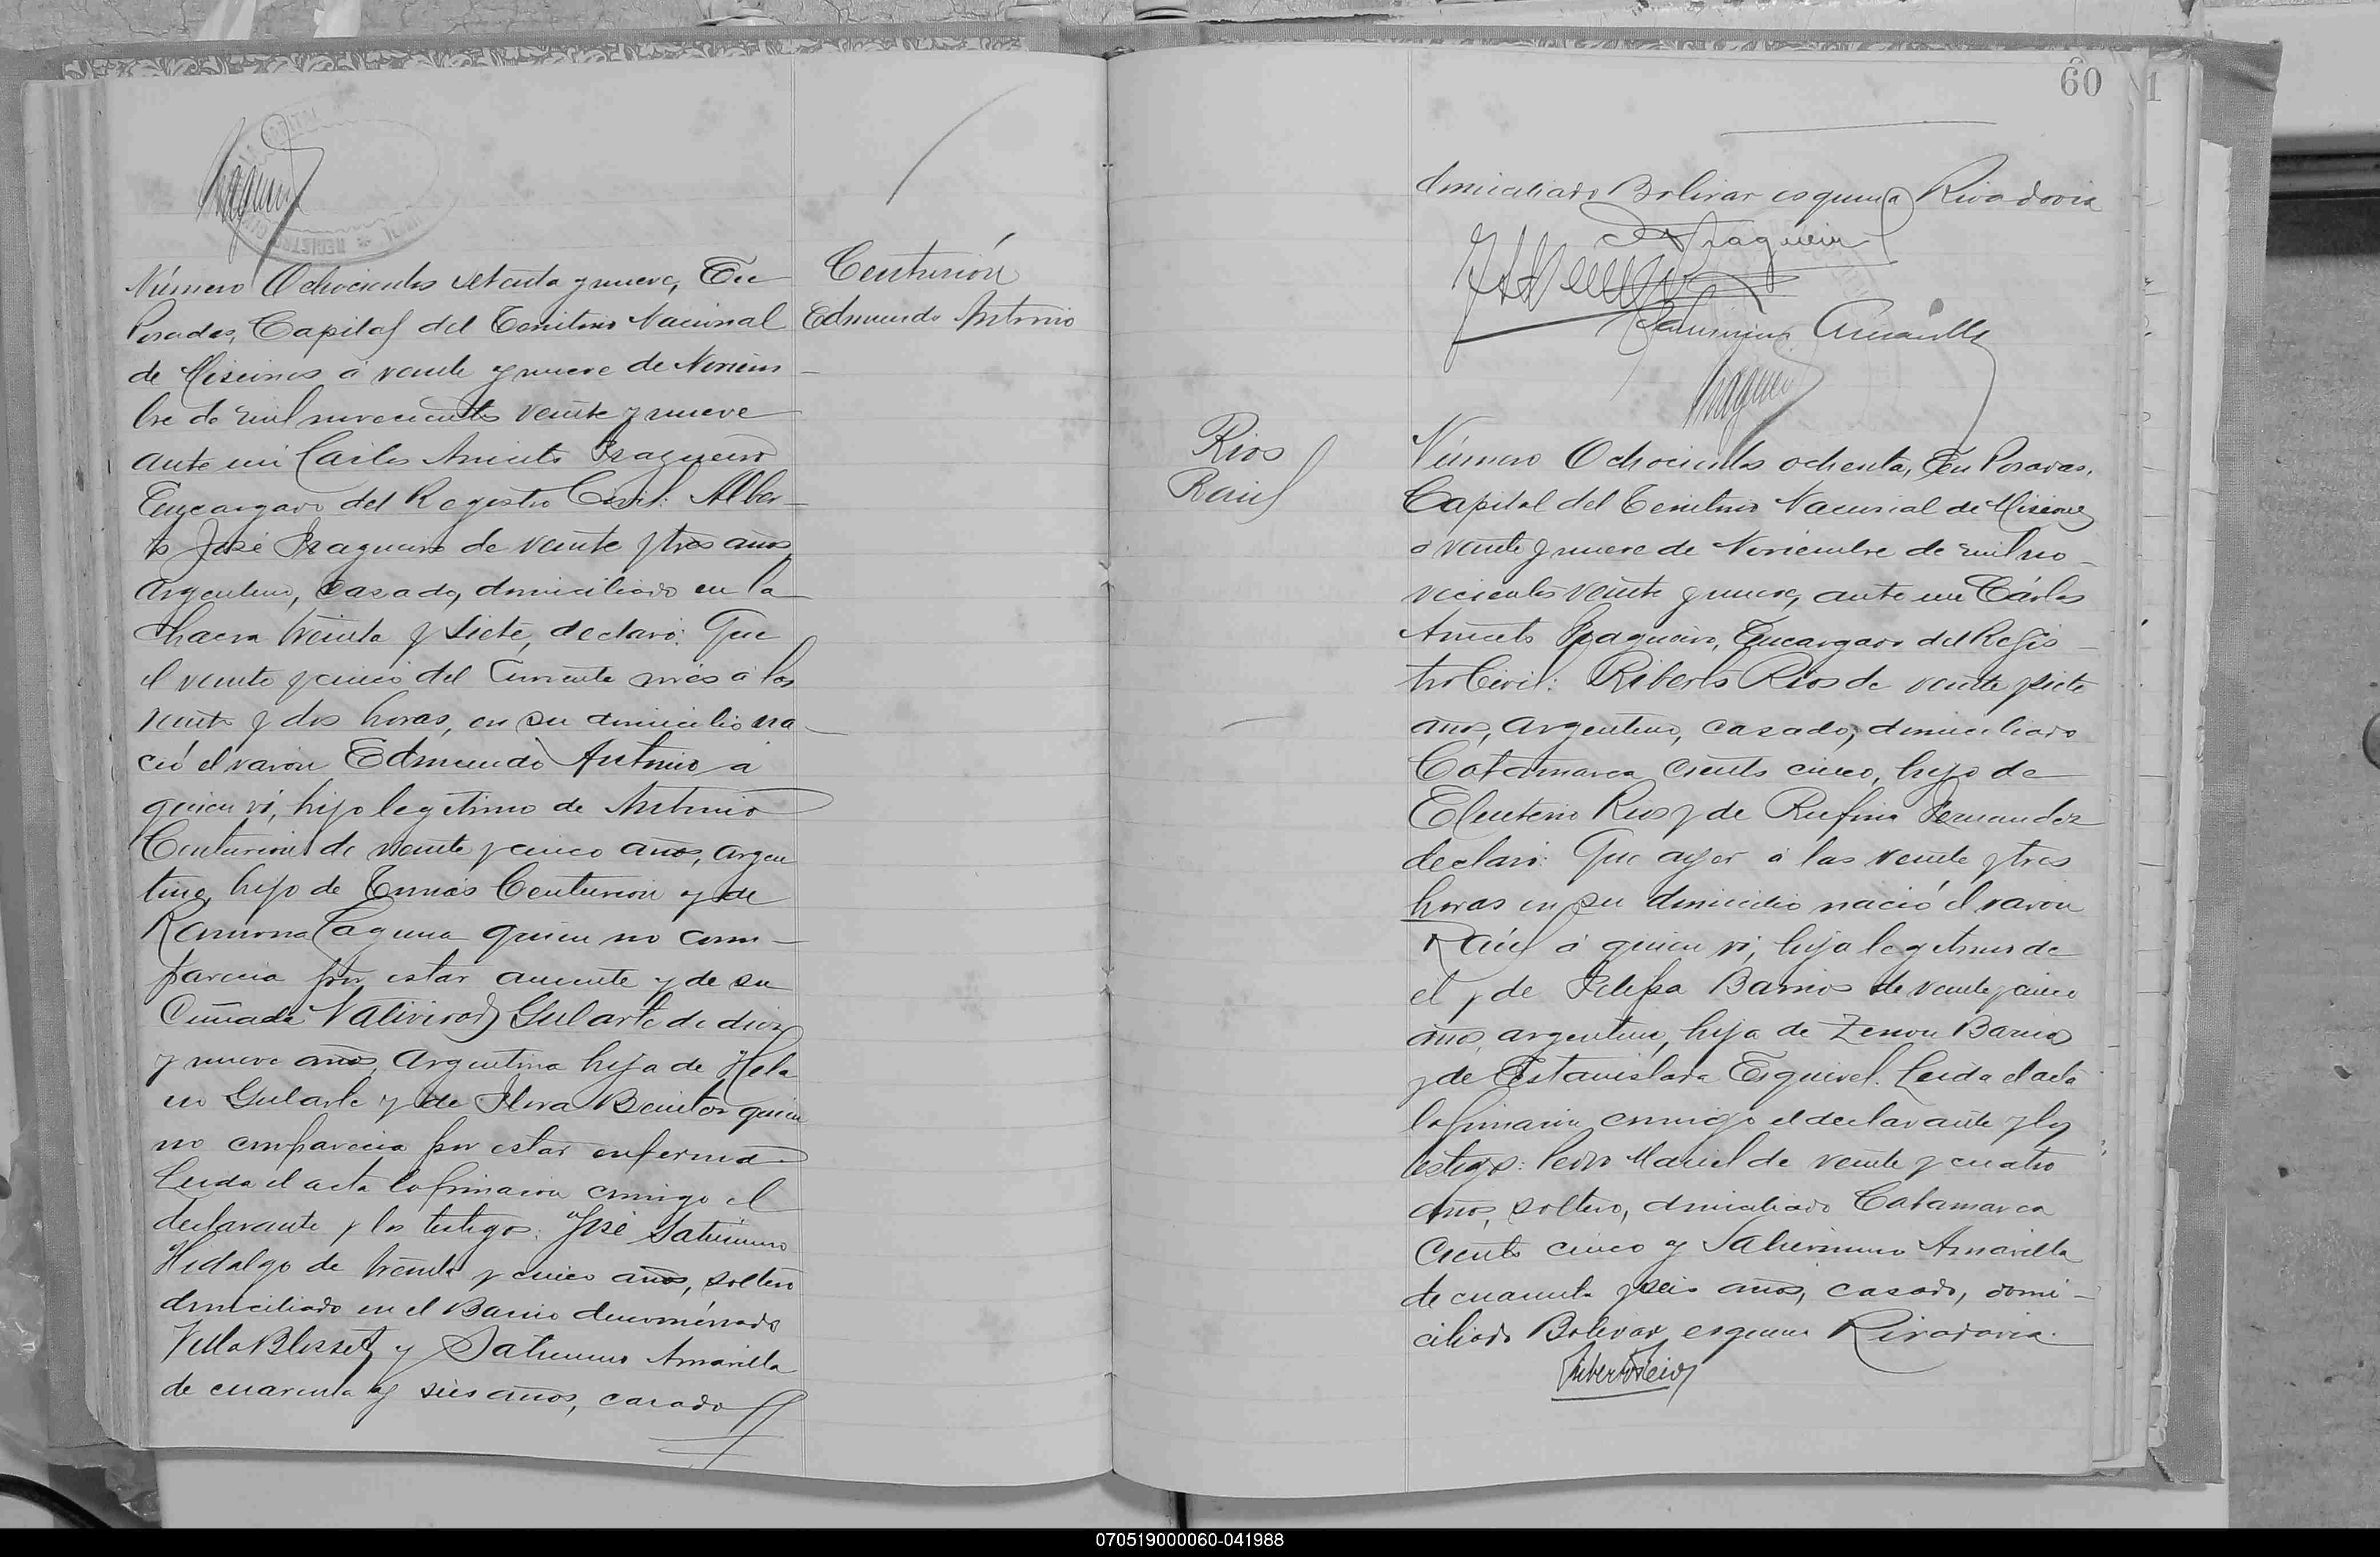 Número Ochocientos setenta y nueve, En
Posadas, Capital del Territorio Nacional
de Misiones á veinte y nueve de Noviem
bre de mil novecientos veinte y nueve
ante mi Carlos Aniceto Fragueiro
Encargado del Registro Civil: Alber-
to José Fragueiro de veinte y tres años
argentino, casado, domiciliado en la
chacra treinta y siete, declaró: Que
el veinte y cinco del corriente mes á las
veinte y dos horas, en su domicilio na-
ció el varon Edmundo Antonio a
quien ví, hijo legitimo de Antonio
Centurion de veinte y cinco años, argen
tino, hijo de Tomás Centurion y de
Ramona Laguna quien no com-
parecia por estar ausente y de su
Cuñada Nalivirod Gularte de diez
y nueve años, argentina hija de
Gularte y de Flora Benitez quien
no comparecia por estar enferma
Leida el acta la firmaron conmigo el
declarante y los testigos: José Saturnino
Hidalgo de treinta y cinco años, soltero
domiciliado en el Barrio denominado
Villa Blosset y Saturnino Amarilla
de cuarenta y seis años, casado
Centurión
Edmundo Antonio
60
1
domiciliado Bolivar esquina Rivadavia
Fragueiro
Saturnino Amarilla
Rios
Raul
Número Ochocientos ochenta, En Posadas,
Capital del Territorio Nacional de Misiones
á veinte y nueve de Noviembre de mil no-
vecientos veinte y nueve, ante mi Cárlos
Aniceto Fragueiro, Encargado del Regis-
tro Civil: Riberto Rios de veinte y siete
años, argentino, casado, domiciliado
Catamarca ciento cinco, hijo de
Eleuterio Rios y de Rufina Fernandez
declaró: Que ayer á las veinte y tres
horas en su domicilio nació el varon
Raúl á quien ví, hijo legitimo de
el y de Felipa Barrios de veinte y cinco
años, argentina, hija de Zenon Barrios
y de Estanislada Esquivel. Leida el acta
la firmaron conmigo el declarante y los
testigos: Pedro Maciel de veinte y cuatro
años, soltero, domiciliado Catamarca
ciento cinco y Saturnino Amarilla
de cuarenta y seis años, casado, domi-
ciliado Bolivar esquina Rivadavia.
Riberto Rios
070519000060-041988